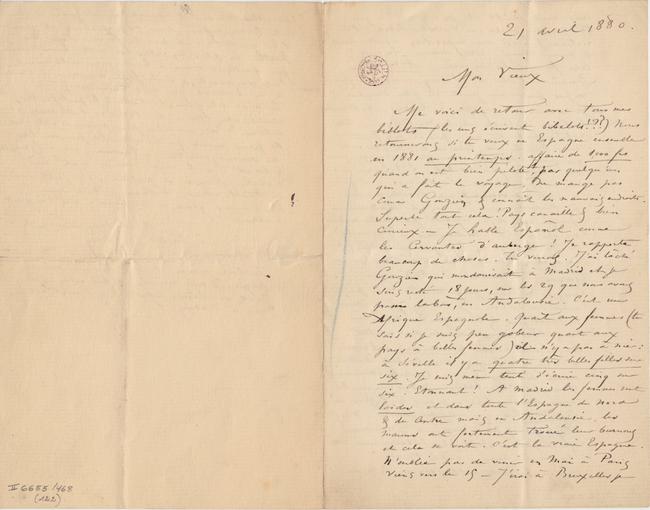 21 avril 1880.
Mon Vieux
Me voici de retour avec tous mes
bibelots (les uns écrivent bibelots!??) Nous
retournerons si tu veux en Espagne ensemble
en 1881 au printemps. affaire de 1,000 frs
quand on est bien piloté, par quelqu'un
qui a fait le voyage, ne mange pas
comme Gouzien & connait les mauvais endroits.
Superbe tout cela! Pays canaille & bien
curieux. Je hable Español comme
les Cervantes d'auberge! Je rapporte
beaucoup de choses. tu verras. J'ai lâché
Gouzien qui à Madrid et je
suis resté 18 jours, sur les 29 que nous avons
passés labas, en Andalousie. C'est une
Afrique Espagnole. Quant aux femmes (tu
sais si je suis peu gobeur quant aux
pays à belles femmes) il n'y a pas à nier:
à Séville il y a quatre très belles filles sur
six. Je suis même tenté d'écrire cinq sur
six. Etonnant! A Madrid les femmes sont
laides et dans toute l'Espagne du Nord
& du Centre mais en Andalousie, les
maures ont fortement troué leur burnous
et cela se voit. C'est la vraie Espagne.
N'oublie pas de venir en Mai à Paris
viens vers le 15 – J'irai à Bruxelles je
II 6655/468
(122)